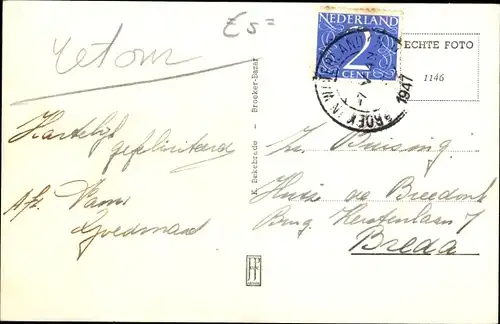 retour
E5=
NEDERLAND
2
CENT
BROEK IN WATERLAND
1947
ECHTE FOTO
1146
Hartelijk
gefeliciteerd
Afz. Fam.
Goedmaat
K. Bekebrede - Broeker-Bazar
Zr. Buising.
Huize de Breedonk
Burg. Kerstenslaan 7
Breda